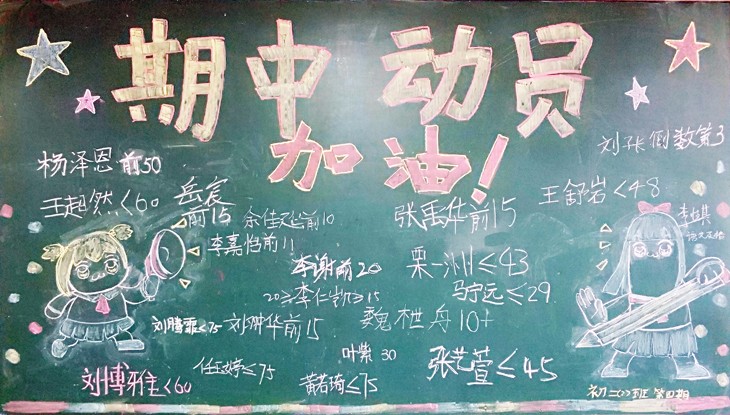 期中动员
加油!
刘张倒数第3
杨泽恩前50
王超然<60
岳宸
前15
余佳延前10
张禹华前15
王舒岩<48
李嘉怡前11
李谢前20
栗一洲≤43
20≥李仁凯≥15
马宁远≤29
刘腾霏<75
刘翀华前15
魏枻舟10+
叶紫30
任玉婷≤75
张艺萱≤45
刘博雅<60
黄若琦≤75
初二班 第四期